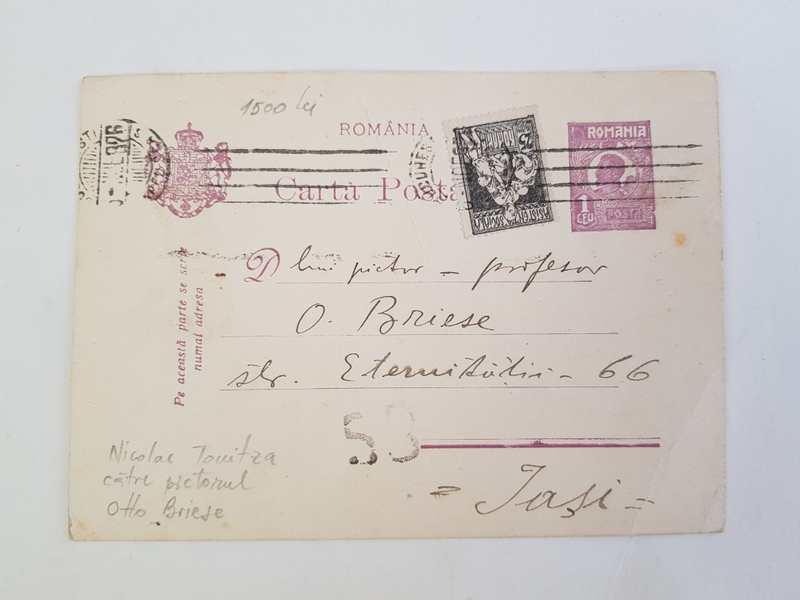 1500 lei
ROMÂNIA
ROMANIA
1
LEU
POSTA
Carta Posta
Dlui pictor - profesor
O. Briese
str. Eternităţii - 66
Pe această parte se scrie
numai adresa
53
= Iaşi =
Nicolae Tonitza
către pictorul
Otto Briese